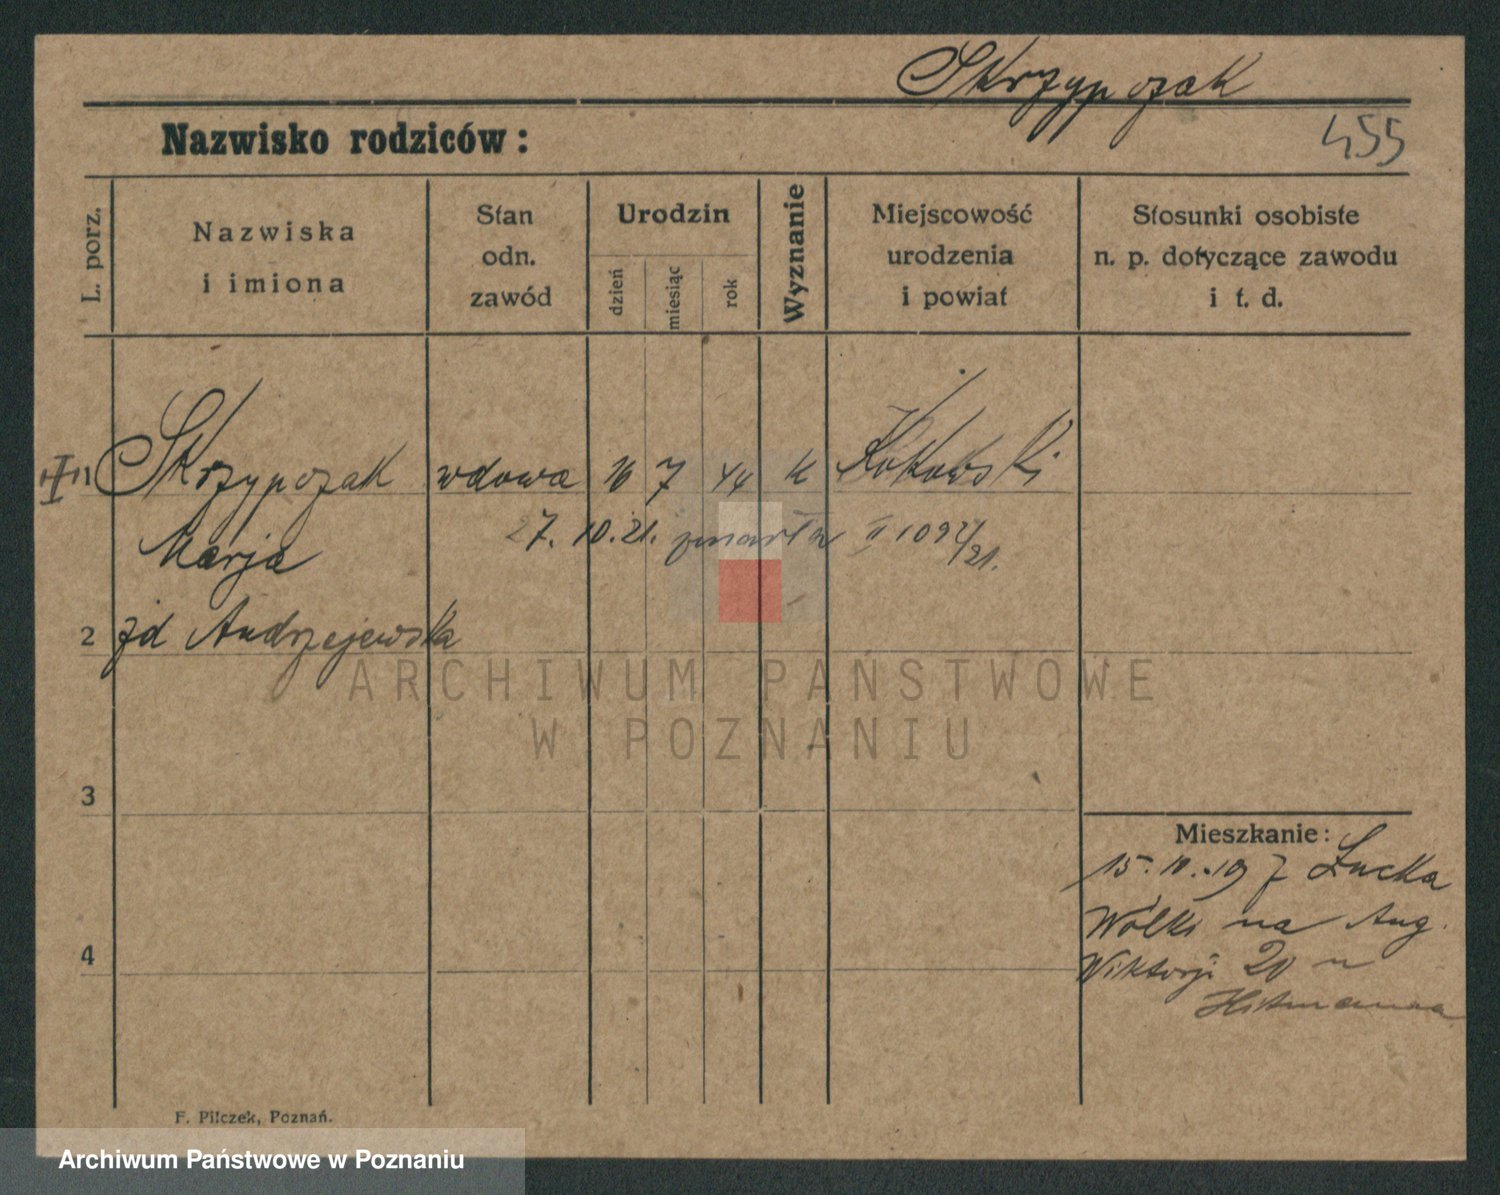 Skrzypczak
Nazwisko rodziców:
455
L. porz.
Nazwiska
i imiona
Stan
odn.
zawód
Urodzin
dzień
miesiąc
rok
Wyznanie
Miejscowość
urodzenia
i powiat
Stosunki osobiste
n. p. dotyczące zawodu
i t. d.
Skrzypczak wdowa 16 7 44 k
27. 10. 21. zmarła II 1092/21.
Marja
2 zd Andrzejewska
ARCHIWUM PAŃSTWOWE
W POZNANIU
3
Mieszkanie:
15. 10. 19 z Łucka
Wólki na Aug.
4
Wiktorji 20 u
F. Pilczek, Poznań.
Archiwum Państwowe w Poznaniu